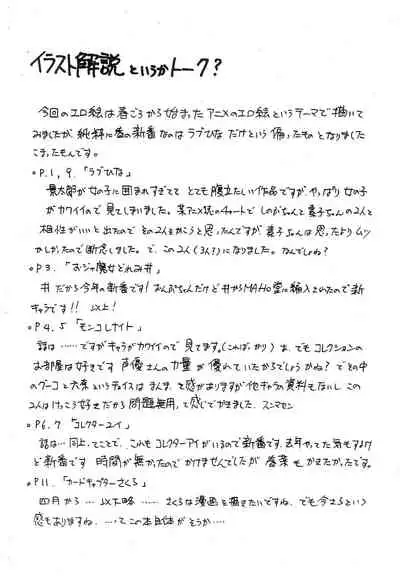 イラスト解説というかトーク?
今回のエロ絵は春ごろから始まったアニメのエロ絵というテーマで描いて
みましたが純粋に春の新番なのはラブひなだけという偏ったものとなりました
こまったもんです。
○P.1,9.「ラブひな」
景太郎が女の子に囲まれすぎてて とても腹立たしい作品ですが、やっぱり女の子
がカワイイので見てしまいました。某アニメ誌の4チャートでしのぶちゃんと素子ちゃんの2人と
相性がいいと出たのでその2人をかこうと思ったんですが素子ちゃんは思ったよりムツ
かしかったので断念しました。で、この2人(3人?)になりました。なんでしょね?
○P3.「おジャ魔女どれみ#」
#だから今年の新番です!おんぷちゃんだけど#からMAHO堂に加入されたので新
キャラです!! 以上!
○P4.5「モンコレナイト」
話は……ですがキャラがカワイイので見てます。(こればっかり)ま、でもコレクションの
お部屋は好きです声優さんの力量が優れていたからでしょうかね?でその中
のグーコと六条というチョイスは さんま、と感がありますが他キャラの資料もないし この
2人はけっこう好きだから問題無用、と感じでかきました。スンマセン
○P6.7「コレクターユイ」
話は…同上、てことで、これもコレクターアイがいるので新番です。去年やってた気もするけ
ど新番です 時間が無かったので かけませんでしたが 春菜もかきたかったです。
○P11.「カードキャプターさくら」
四月から…以下略……さくらは漫画を描きたいですね、でも今さらという
感もありますね、…てこの本自体がそうか……